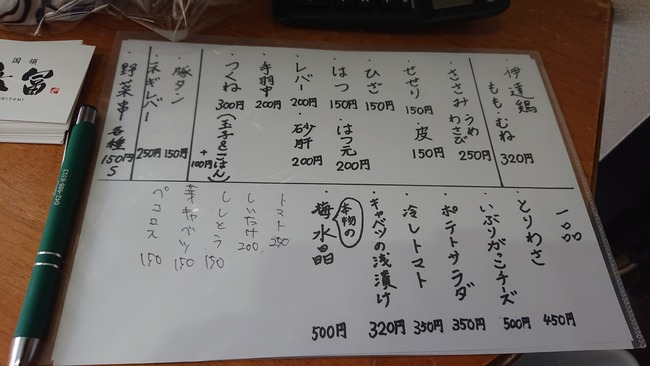 伊達鶏
もも・むね
320円
・ささみ うめ わさび
250円
・せせり
150円
・皮
150円
・ひざ
150円
・はつ
150円
・はつ元
200円
・レバー
200円
・砂肝
200円
・手羽中
200円
・つくね
300円
(玉子&ごはん)
+100円
・豚タン
150円
・ネギレバー
250円
・野菜串 各種
150円
S
一品
・とりわさ
450円
・いぶりがっこチーズ
500円
・ポテトサラダ
350円
・冷しトマト
350円
・キャベツの浅漬け
320円
本物の
・梅水晶
500円
トマト 250
しいたけ 200
ししとう 150
芽キャベツ 150
ペコロス 150